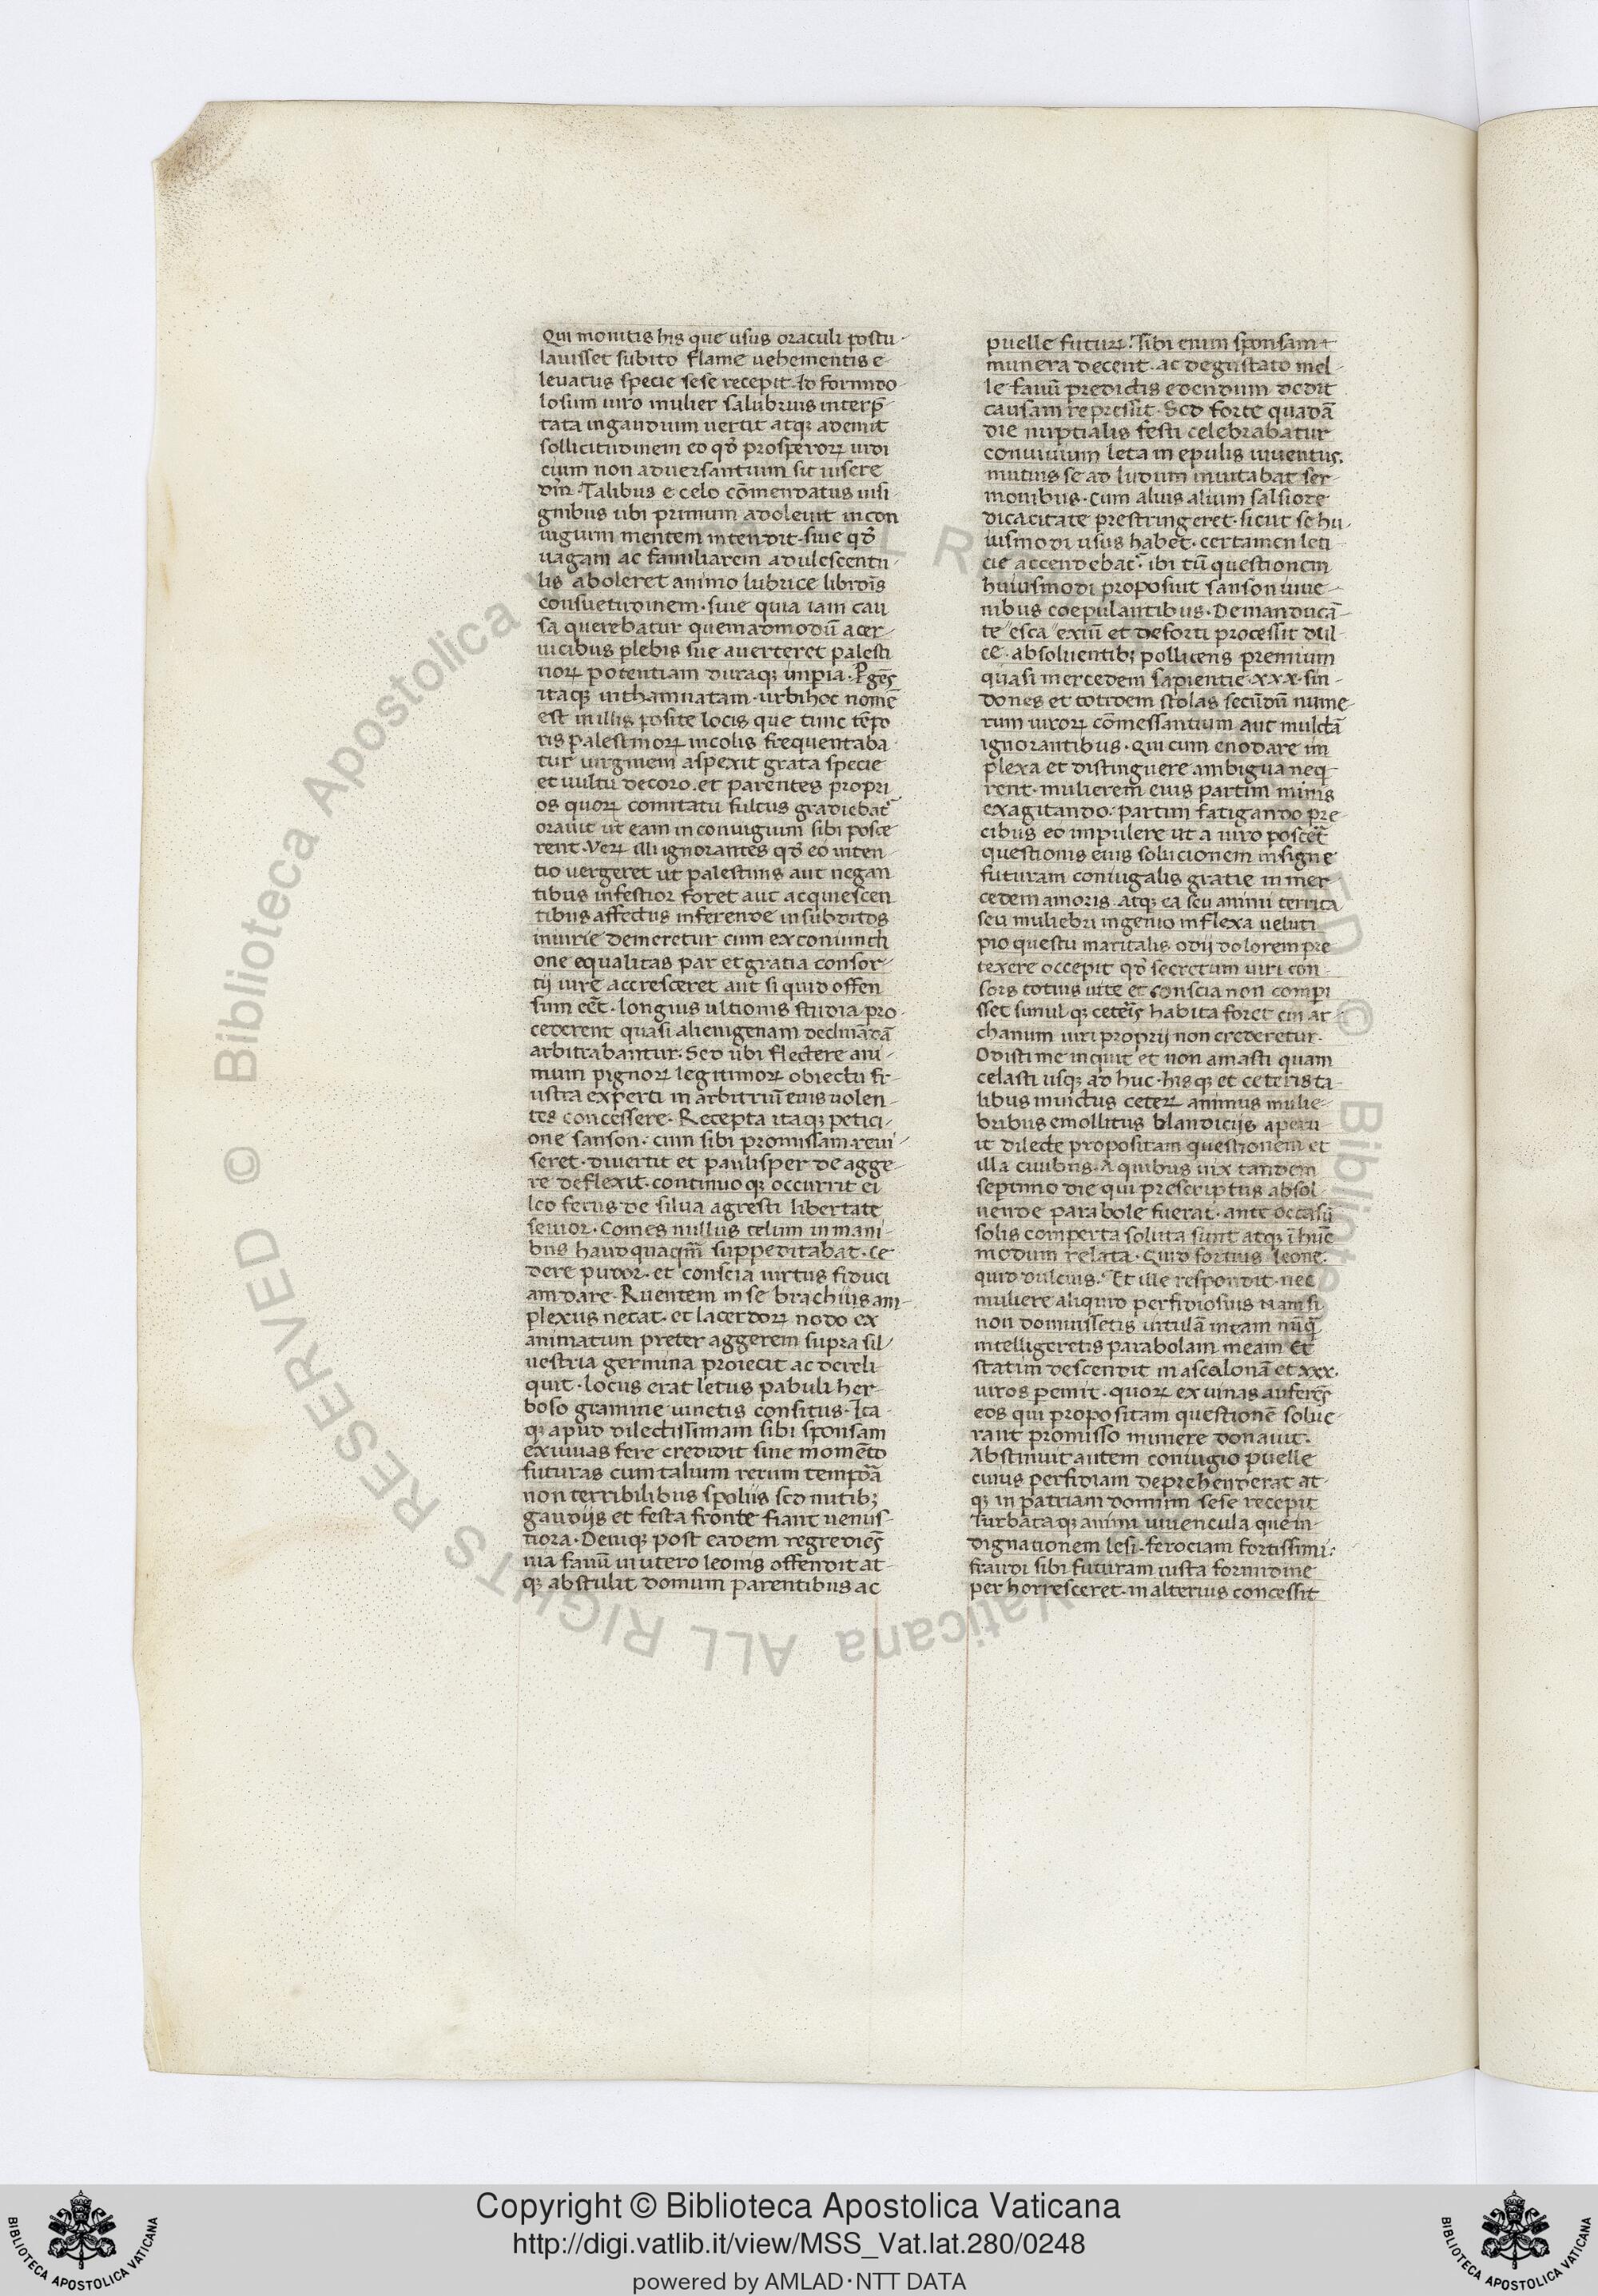 Qui monitis his que usus oraculi postu-
lauisset subito flame uehementis e-
leuatus specie sese recepit. Id formido-
losum uiro mulier salubrius interp̄-
tata in gaudium uertit atqꝫ ademit
sollicitudinem eo qđ prosperoꝝ indi
cium non aduersantium sit uisere
dm̄. Talibus e celo cōmendatus insi-
gnibus ubi primum adoleuit in con
iugium mentem intendit. siue qđ
uagam ac familiarem adulescentu-
lis aboleret animo lubrice libidīs
consuetudinem. siue quia iam cau
sa querebatur quemadmodū a cer-
uicibus plebis sue auerteret palesti
noꝝ potentiam duraqꝫ impia. Pgēs
itaqꝫ in thamnatam. urbi hoc nomē
est in illis posite locis que tunc tēpo
ris palestinoꝝ incolis frequentaba
tur uirginem aspexit grata specie
et uultu decoro. et parentes propri
os quoꝝ comitatu fultus gradiebat᷑
orauit ut eam in coniugium sibi posce
rent. Veꝝ illi ignorantes qđ eo inten-
tio uergeret ut palestinis aut negan
tibus infestior foret aut acquiescen
tibus affectus inferende in subditos
iniurie demeretur cum ex coniuncti
one equalitas par et gratia consor-
tij iure accresceret aut si quid offen
sum eēt. longius ultionis studia pro-
cederent quasi alienigenam declinādā
arbitrabantur. Sed ubi flectere ani-
mum pignoꝝ legitimoꝝ obiectu fr-
ustra experti in arbitriū eius uolen-
tes concessere. Recepta itaqꝫ petici-
one sanson. cum sibi promissam reui-
seret. diuertit et paulisper de agge-
re deflexit. continuo qꝫ occurrit ei
leo ferus de silua agresti libertate
seuior. Comes nullus telum in mani-
bus haudquaqm̄ suppeditabat. Ce
dere pudor. et conscia uirtus fiduci
am dare. Ruentem in se brachijs am-
plexus necat. et lacertoꝝ nodo ex
animatum preter aggerem supra sil-
uestria germina proiecit ac dereli
quit. locus erat letus pabuli her-
boso gramine uinetis consitus. Ita-
qꝫ apud dilectissimam sibi sponsam
exuuias fere credidit sine momēto
futuras cum talium rerum tempoꝝa
non terribilibus spolijs sed mitibꝫ
gaudijs et festa fronte fiant uenus-
tiora. Deniqꝫ post eadem regrediēs
uia fauū in utero leonis offendit at-
qꝫ abstulit domum parentibus ac
puelle futuꝝ. Tibi enim sponsam
munera decent. ac degustato mel-
le fauū predictis edendum dedit
causam repressit. Sed forte quadā
die nuptialis festi celebrabatur
conuiuium leta in epulis iuuentus.
mutuis se ad ludum inuitabat ser-
monibus. cum alius alium salsiore
dicacitate prestringeret. sicut se hu-
iusmodi usus habet. certamen leti
cie accendebat᷑ ibi tū questionem
huiusmodi proposuit sanson iuue-
nibus coepulantibus. De manducā-
te esca exiū et de forti processit dul-
ce. absoluentibꝫ pollicens premium
quasi mercedem sapientie. xxx. sin-
dones et totidem stolas secūdū nume-
rum uiroꝝ cōmessantium aut mulctā
ignorantibus. qui cum enodare im
plexa et distinguere ambigua neq̄-
rent. mulierem eius partim minis
exagitando. partim fatigando pre-
cibus eo impulere ut a uiro poscēt
questionis eius solucionem insigne
futuram coniugalis gratie in mer-
cedem amoris. atqꝫ ea seu animi territa
seu muliebri ingenio inflexa ueluti
pio questu maritalis odij dolorem pre
texere occepit qđ secretum uiri con-
sors totius uite et conscia non compi
sset simul qꝫ ceteris habita foret cui ar-
chanum uiri proprij non crederetur.
Odisti me inquit et non amasti quam
celasti usqꝫ ad huc. his qꝫ et ceteris ta-
libus inuictus ceteꝝ animus mulie-
bribus emollitus blandicijs aperu-
it dilecte propositam questionem et
illa ciuibus. A quibus uix tandem
septimo die qui prescriptus absol-
uende parabole fuerat. ante occasū
solis comperta soluta sunt atqꝫ ī hūc
modum relata. Quid fortius leone.
quid dulcius. Et ille respondit. nec
muliere aliquid perfidiosius nam si
non domuissetis uitulā meam nūq̄
intelligeretis parabolam meam Et
statim descendit in ascalonā et xxx.
uiros pemit. quoꝝ exuuias auferēs
eos qui propositam questionē solue-
rant promisso munere donauit.
Abstinuit autem coniugio puelle
cuius perfidiam deprehenderat at-
qꝫ in patriam domum sese recepit
Turbata qꝫ animi iuuencula que in-
dignationem lesi. ferociam fortissimi.
fraudi sibi futuram iusta formidine
per horresceret. in alterius concessit
Copyright © Biblioteca Apostolica Vaticana
http://digi.vatlib.it/view/MSS_Vat.lat.280/0248
powered by AMLAD·NTT DATA